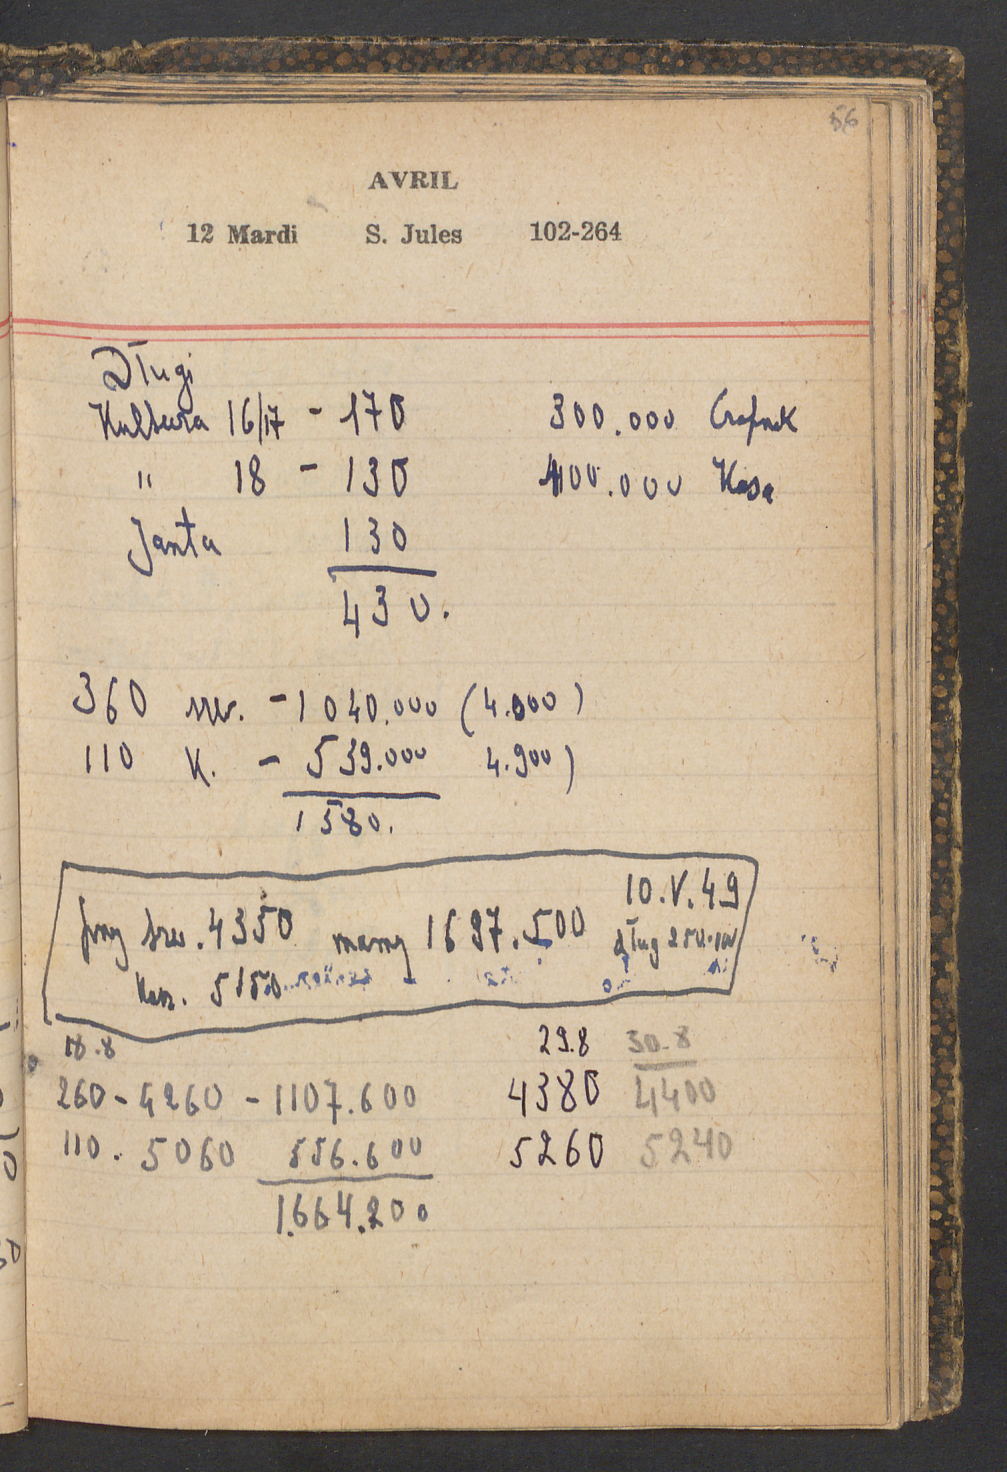 56
AVRIL
12 Mardi S. Jules 102-264
Długi
Kultura 16/17 - 170 300.000 Czapsk
" 18 - 130 400.000 Kasa
Janta 130
430.
360 szw. - 1040.000 (4.000)
110 K. - 539.000 4.900)
1580.
10.V.49
szw. 4350 mamy 1697.500 dług
5150
18.8 29.8 30.8
260 - 4260 - 1107.600 4380 4400
110. 5060 556.600 5260 5240
1.664.200